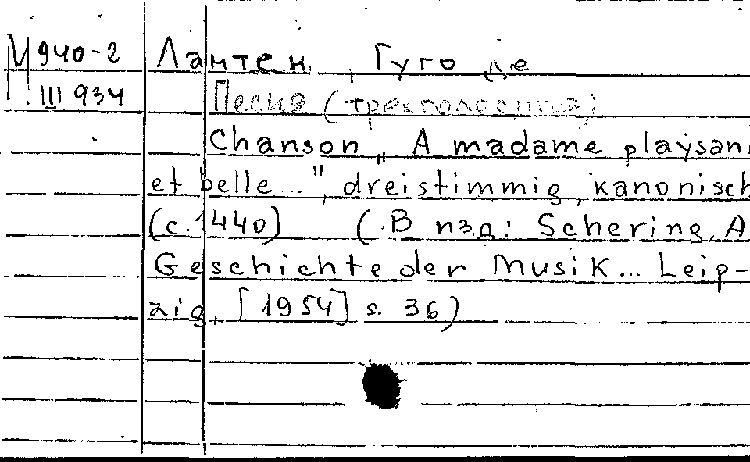 М 940-2 Лантен, Гуго де
III 934 Песня (трехголосная)
Chanson „A madame playsan
et belle...", dreistimmig, kanonisch
(c. 1440) (В изд: Schering, A
Geschichte der Musik... Leip-
zig, [1954] s. 36)